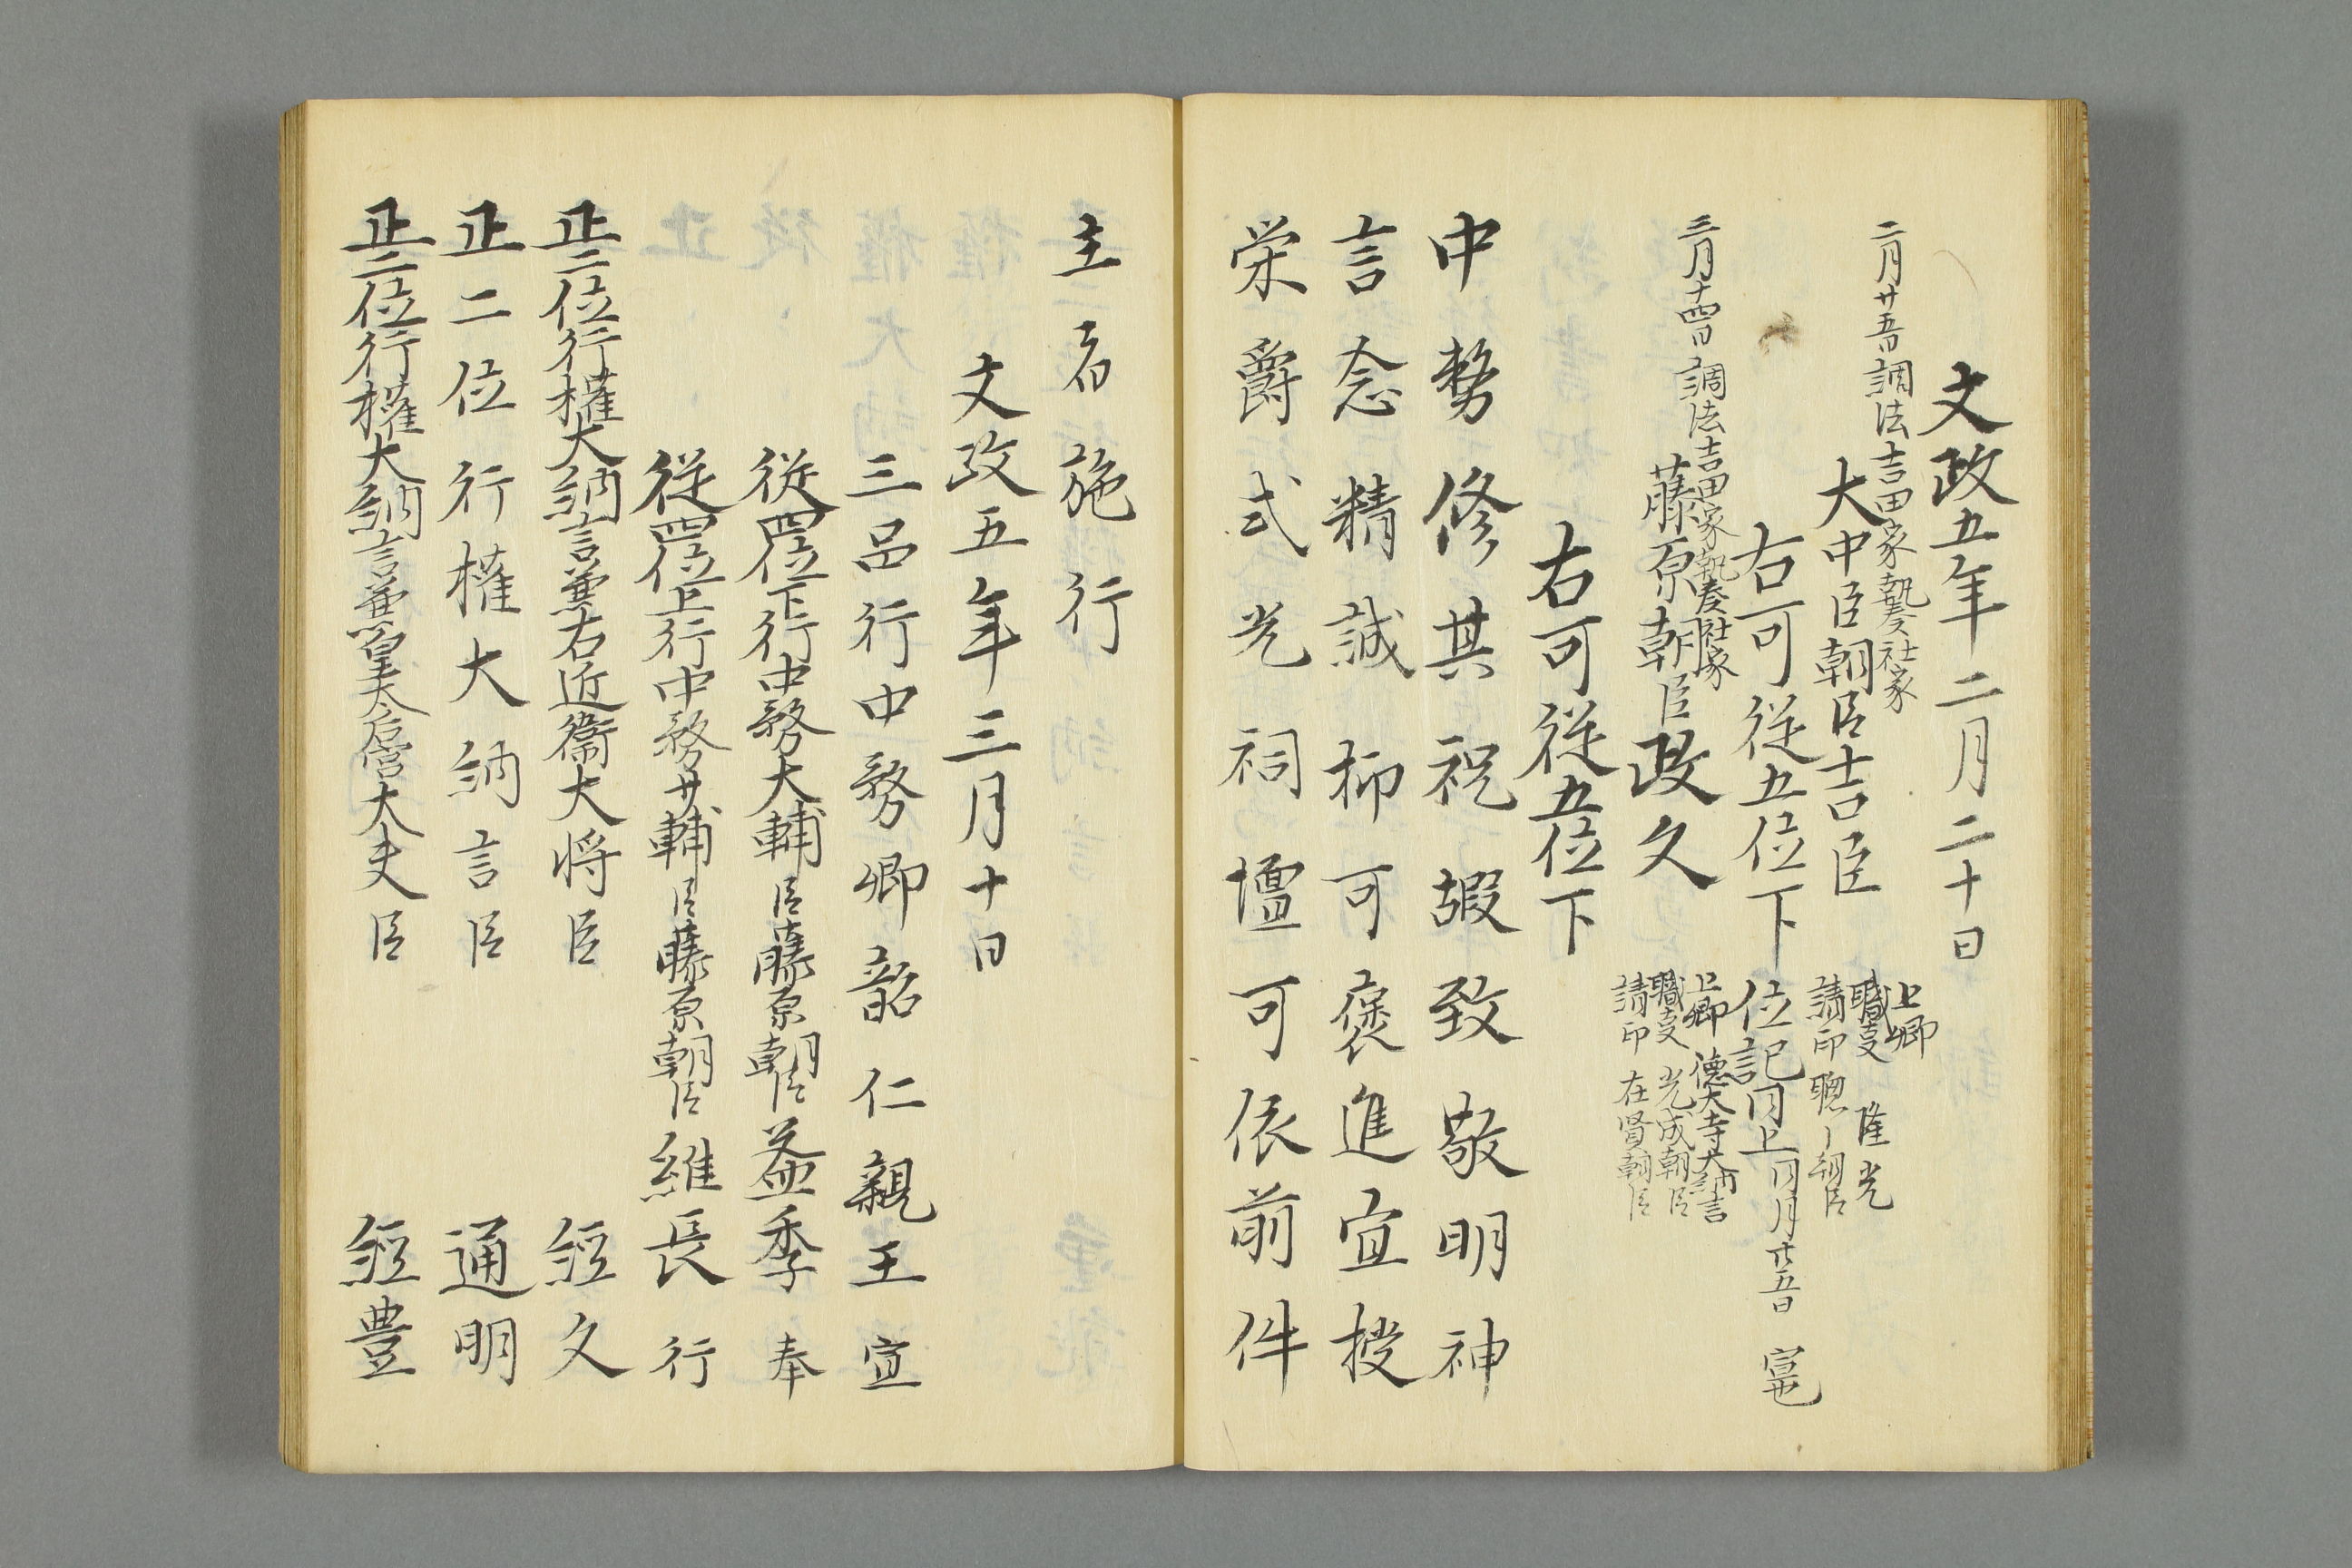 文政五年二月二十日
二月廿五日調法吉田家執奏社家
大中臣朝臣吉臣
上卿
職事 隆光
請印 聰〻朝臣
右可従五位下
位記同上同月廿五日
三月十四日調法吉田家執奏社家
藤原朝臣政久
上卿 德大寺大納言
職事 光成朝臣
請印 在賢朝臣
右可従五位下
中務修其祝嘏致敬明神
言念精誠抑可褒進宜授
栄爵式光祠壇可依前件
主者施行
文政五年三月十日
三品行中務卿韶仁親王宣
従四位下行中務大輔臣藤原朝臣益季奉
従四位上行中務少輔臣藤原朝臣維長行
正二位行権大納言兼右近衞大将臣 経久
正二位行権大納言臣 通明
正二位行権大納言兼皇太后宮大夫臣 経豊